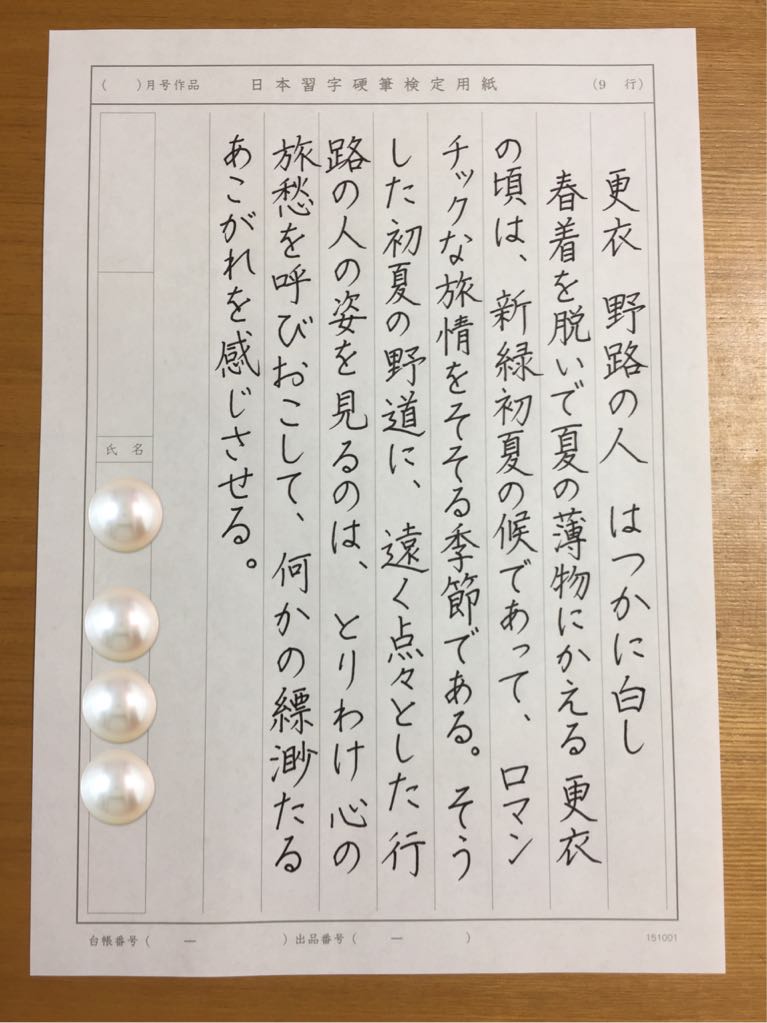 (　　)月号作品　日本習字硬筆検定用紙　(9　行)
更衣　野路の人　はつかに白し
春着を脱いで夏の薄物にかえる更衣
の頃は、新緑初夏の候であって、ロマン
チックな旅情をそそる季節である。そう
した初夏の野道に、遠く点々とした行
路の人の姿を見るのは、とりわけ心の
旅愁を呼びおこして、何かの縹渺たる
あこがれを感じさせる。
氏名
台帳番号(　　ー　　)出品番号(　　ー　　)
151001